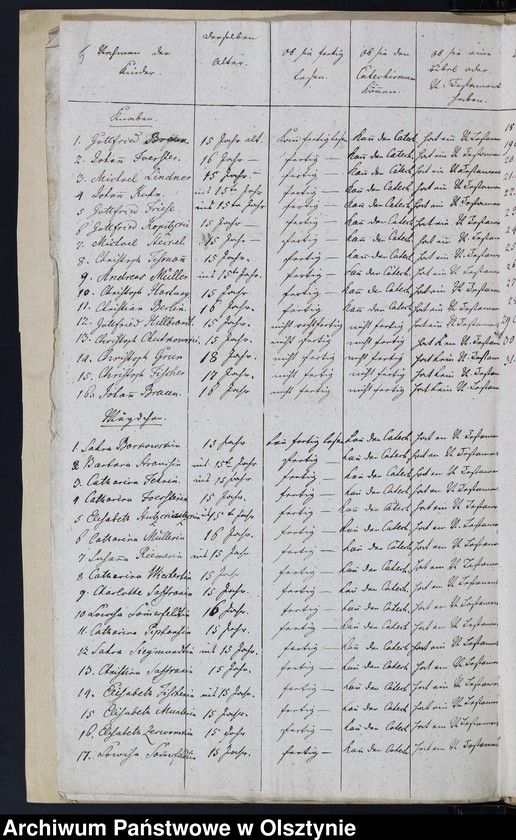 Nahmen der Kinder. derselben Alter. Ob sie fertig lesen. Ob sie den Catechismum können. Ob sie eine Bibel oder N. Testament haben.
Knaben.
1. Gottfried Braun. 15 Jahr alt. Kan fertig lesen Kan den Catech. hat ein N. Testam
2. Johann 16 Jahr — fertig — Kan den Catech. hat ein N. Testam
3. Michael Lindner 15 Jahr — fertig — Kan den Catech. hat ein N. Testam
4 Johann Kuhn. ins 15te Jahr fertig — Kan den Catech. hat ein N. Testam
5 Gottfried Friese ins 15te Jahr fertig — Kan den Catech. hat ein N. Testam
6 Gottfried 15 Jahr — fertig — Kan den Catech. hat ein N. Testam
7. Michael 15 Jahr — fertig — Kan den Catech. hat ein N. Testam
8. Christoph 15 Jahr. fertig — Kan den Catech. hat ein N. Testam
9. Andreas Müller ins 15te Jahr. fertig — Kan den Catech. hat ein N. Testam
10. Christoph Hartung 15 Jahr. fertig — Kan den Catech. hat ein N. Testam
11. Christian Berlin. 16 Jahr. fertig — Kan den Catech. hat ein N. Testam
12. Gottfried Hillbrant. 15 Jahr. nicht recht fertig nicht fertig hat ein N. Testam
13. Christoph 15 Jahr. nicht fertig nicht fertig hat kein N. Testam
14. Christoph Grun 18 Jahr. nicht fertig nicht fertig hat kein N. Testam
15. Christoph Fischer 17 Jahr. nicht fertig nicht fertig hat kein N. Testam
16. Johann Braun. 18 Jahr nicht fertig nicht fertig hat kein N. Testam
Mägdchen.
1. Sahra 15 Jahr Kan fertig lesen Kan den Catech. hat ein N. Testam
2 Barbara ins 15te Jahr fertig — Kan den Catech. hat ein N. Testam
3. Catharina ins 15 Jahr fertig — Kan den Catech. hat ein N. Testam
4 Catharina 15 Jahr. fertig — Kan den Catech. hat ein N. Testam
5 Elisabeth ins 15te Jahr fertig — Kan den Catech. hat ein N. Testam
6 Catharina Müllerin 16 Jahr. fertig — Kan den Catech. hat ein N. Testam
7 Susanna Riemerin ins 15 Jahr fertig — Kan den Catech. hat ein N. Testam
8 Catharina 15 Jahr fertig — Kan den Catech. hat ein N. Testam
9. Charlotte 15 Jahr. fertig — Kan den Catech. hat ein N. Testam
10 Lowisa 16 Jahr. fertig — Kan den Catech. hat ein N. Testam
11. Catharina 15 Jahr. fertig — Kan den Catech. hat ein N. Testam
12 Sahra ins 15 Jahr. fertig — Kan den Catech. hat ein N. Testam
13. Christina 15 Jahr. fertig — Kan den Catech. hat ein N. Testam
14. Elisabeth Fischerin ins 15 Jahr. fertig — Kan den Catech. hat ein N. Testam
15 Elisabeth 15 Jahr. fertig — Kan den Catech. hat ein N. Testam
16. Elisabeth 15 Jahr fertig — Kan den Catech. hat ein N. Testam
17. Lowisa 15 Jahr. fertig — Kan den Catech. hat ein N. Testam
Archiwum Państwowe w Olsztynie